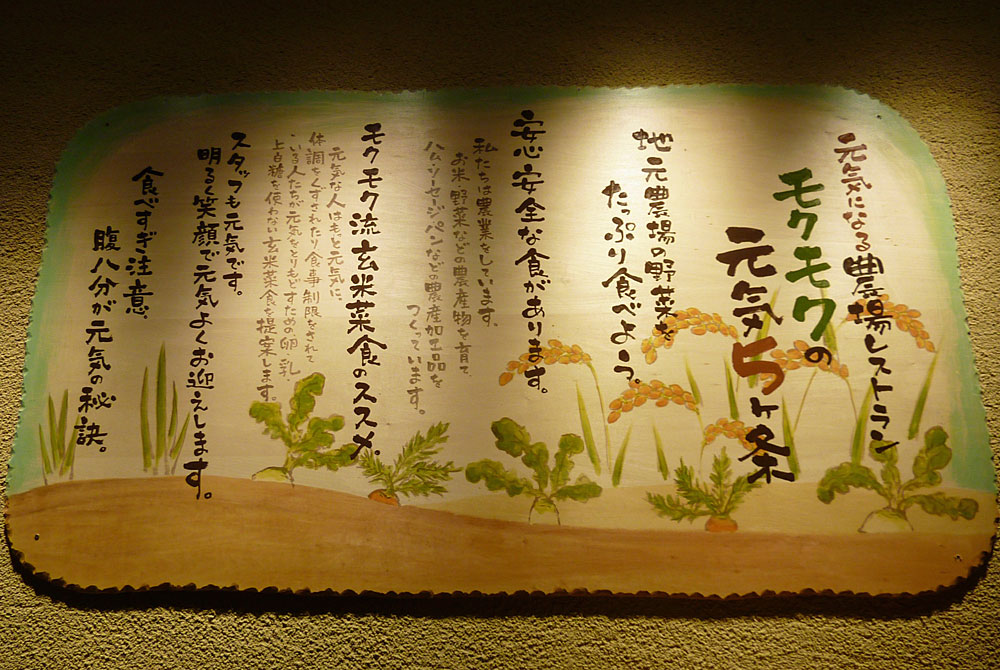 元気になる農場レストラン
モクモクの
元気5ヶ条
地元農場の野菜を
たっぷり食べよう。
安心安全な食があります。
私たちは農業をしています。
お米・野菜などの農産物を育て、
ハム、ソーセージ、パンなどの農産加工品を
つくっています。
モクモク流玄米菜食のススメ。
元気な人はもっと元気に、
体調をくずされたり食事制限をされて
いる人たちが元気をとりもどすための卵、乳、
上白糖を使わない玄米菜食を提案します。
スタッフも元気です。
明るく笑顔で元気よくお迎えします。
食べすぎ注意。
腹八分が元気の秘訣。